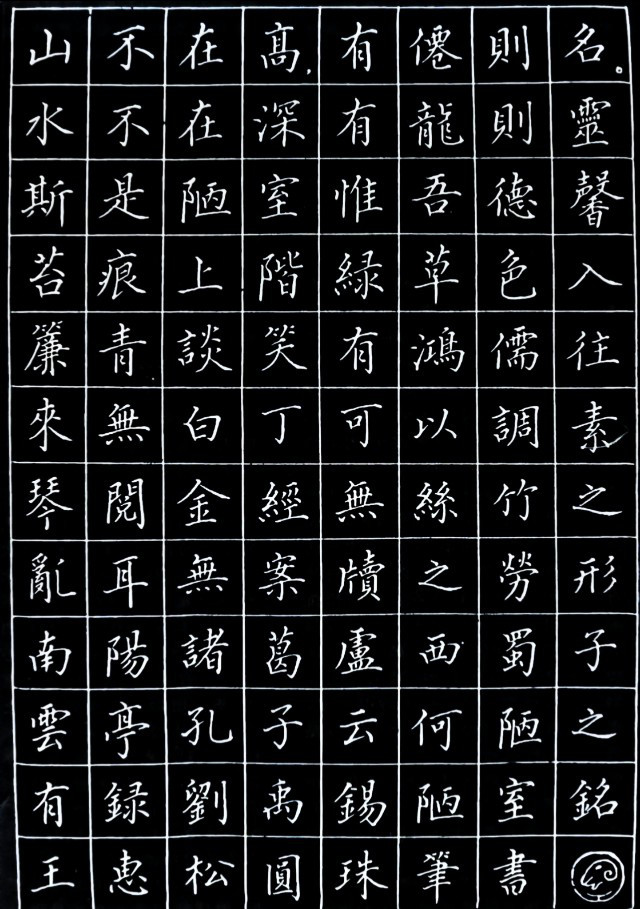 山不在高,有僊則名。
水不在深有龍則靈
斯是陋室惟吾德馨
苔痕上階緑草色入
簾青談笑有鴻儒往
來無白丁可以調素
琴閱金經無絲竹之
亂耳無案牘之勞形
南陽諸葛盧西蜀子
雲亭孔子云何陋之
有録劉禹錫陋室銘
王惠松圓珠筆書